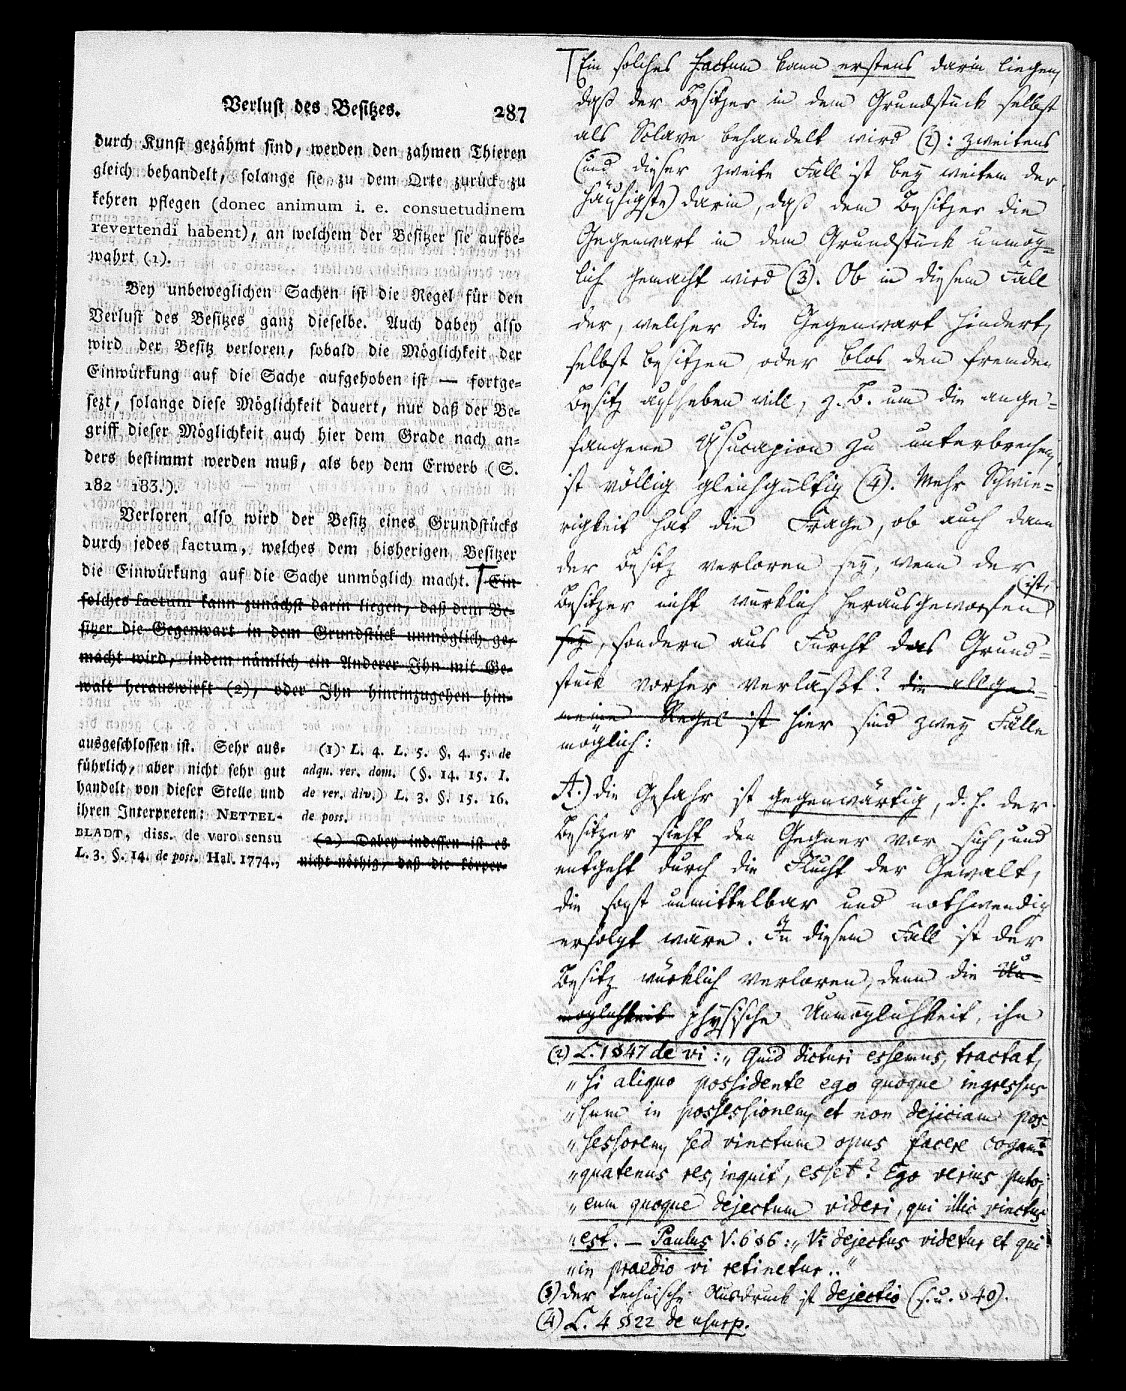 Verlust des Besitzes. 287
durch Kunst gezähmt sind, werden den zahmen Thieren
gleich behandelt, solange sie zu dem Orte zurück zu
kehren pflegen (donec animum i. e. consuetudinem
revertendi habent), an welchem der Besitzer sie aufbe-
wahrt (1).
Bey unbeweglichen Sachen ist die Regel für den
Verlust des Besitzes ganz dieselbe. Auch dabey also
wird der Besitz verloren, sobald die Möglichkeit der
Einwürkung auf die Sache aufgehoben ist — fortge-
sezt, solange diese Möglichkeit dauert, nur daß der Be-
griff dieser Möglichkeit auch hier dem Grade nach an-
ders bestimmt werden muß, als bey dem Erwerb (S.
182 183.).
Verloren also wird der Besitz eines Grundstücks
durch jedes factum, welches dem bisherigen Besitzer
die Einwürkung auf die Sache unmöglich macht. Ein
solches factum kann zunächst darin liegen, daß dem Be-
sitzer die Gegenwart in dem Grundstück unmöglich ge-
macht wird, indem nämlich ein Anderer Ihn mit Ge-
walt herauswirft (2), oder Ihn hineinzugehen hin-
ausgeschlossen ist. Sehr aus-
führlich, aber nicht sehr gut
handelt von dieser Stelle und
ihren Interpreten: NETTEL-
BLADT, diss. de vero sensu
L. 3. §. 14. de poss. Hal. 1774.,
(1) L. 4. L. 5. §. 4. 5. de
adqu. rer. dom. (§. 14. 15. I.
de rer. div.) L. 3. §. 15. 16.
de poss.
(2) Dabey indessen ist es
nicht nöthig, daß die körper-
Ein solches factum kann erstens darin liegen,
daß der Besitzer in dem Grundstück selbst
als Sclave behandelt wird (2): zweitens
(und dieser zweite Fall ist bey weitem der
häufigste) darin, daß dem Besitzer die
Gegenwart in dem Grundstück unmög-
lich gemacht wird (3). Ob in diesem Fall
der, welcher die Gegenwart hindert,
selbst besitzen, oder blos den fremden
Besitz aufheben will, z. B. um die ange-
fangene Usucapion zu unterbrechen,
ist völlig gleichgültig (4). Mehr Schwie-
rigkeit hat die Frage, ob auch dann
der Besitz verloren sey, wenn der
Besitzer nicht würklich herausgeworfen ist,
sey, sondern aus Furcht das Grund-
stück vorher verläßt? die allge-
meine Regel ist hier sind zwey Fälle
möglich:
A.) die Gefahr ist gegenwärtig, d. h. der
Besitzer sieht den Gegner vor sich, und
entgeht durch die Flucht der Gewalt,
die sonst unmittelbar und nothwendig
erfolgt wäre. In diesem Fall ist der
Besitz würklich verloren, denn die Un-
möglichkeit physische Unmöglichkeit, ihn
(2) L. 1 §47 de vi: „Quid dicturi essemus, tractat,
„si aliquo possidente ego quoque ingressus
„sum in possessionem, et non dejiciam pos-
„sessorem, sed vinctum opus facere cogam?
„quatenus res, inquit, esset? Ego verius puto,
„eum quoque dejectum videri, qui illic vinctus
„est. — Paulus V. 6 §6: „Vi dejectus videtur et qui
„in praedio vi retinetur.."
(3) der technische Ausdruck ist dejectio (s. u. § 40).
(4) L. 4 §22 de usurp.